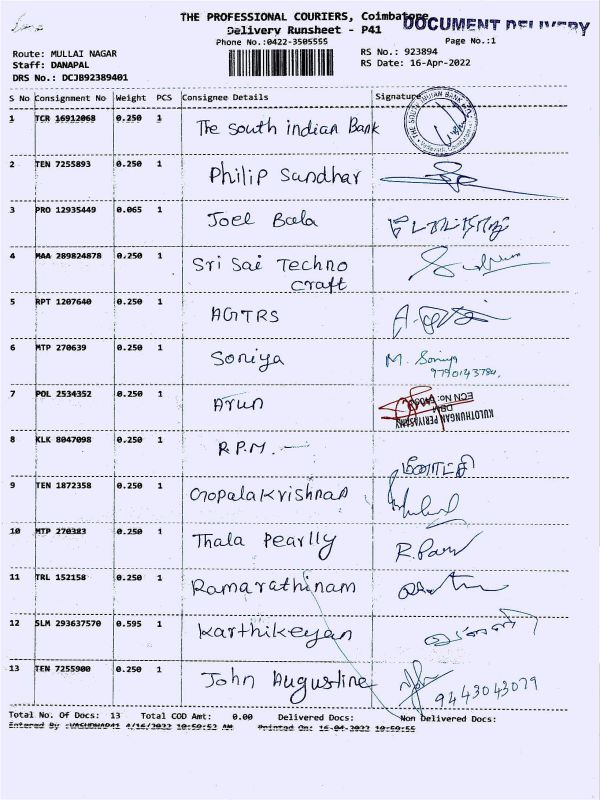 THE PROFESSIONAL COURIERS, Coimbatore
DOCUMENT DELIVERY
Delivery Runsheet - P41
Phone No.:0422-3505555
Page No.:1
Route: MULLAI NAGAR
Staff: DANAPAL
DRS No.: DCJB92389401
RS No.: 923894
RS Date: 16-Apr-2022
S No Consignment No Weight PCS Consignee Details Signature
1 TCR 16912068 0.250 1 The South indian Bank
2 TEN 7255893 0.250 1 Philip Sandhar
3 PRO 12935449 0.065 1 Joel Bala
4 MAA 289824878 0.250 1 Sri Sai Techno
craft
5 RPT 1207640 0.250 1 AGTRS
6 MTP 270639 0.250 1 Soniya M. Soniya
9790143784.
7 POL 2534352 0.250 1 Arun
KULOTHUNGAN PERIYASAMY
8 KLK 8047098 0.250 1 R.P.M. மீனாட்சி
9 TEN 1872358 0.250 1 Gopalakrishnan
10 MTP 270383 0.250 1 Thala Pearlly
11 TRL 152158 0.250 1 Ramarathinam
12 SLM 293637570 0.595 1 Karthikeyan
13 TEN 7255900 0.250 1 John Augustine 9443043079
Total No. Of Docs: 13 Total COD Amt: 0.00 Delivered Docs: Non Delivered Docs:
Entered By :VASUDHAP41 4/16/2022 10:59:52 AM Printed On: 16-04-2022 10:59:55